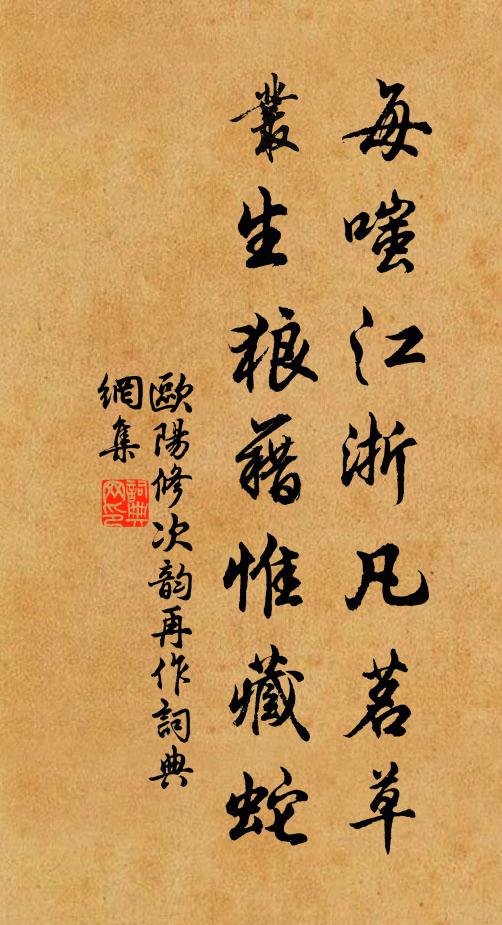 每嗤江浙凡茗草
叢生狼藉惟藏蛇
歐陽修次韵再作詞典
網集
詞典
网印